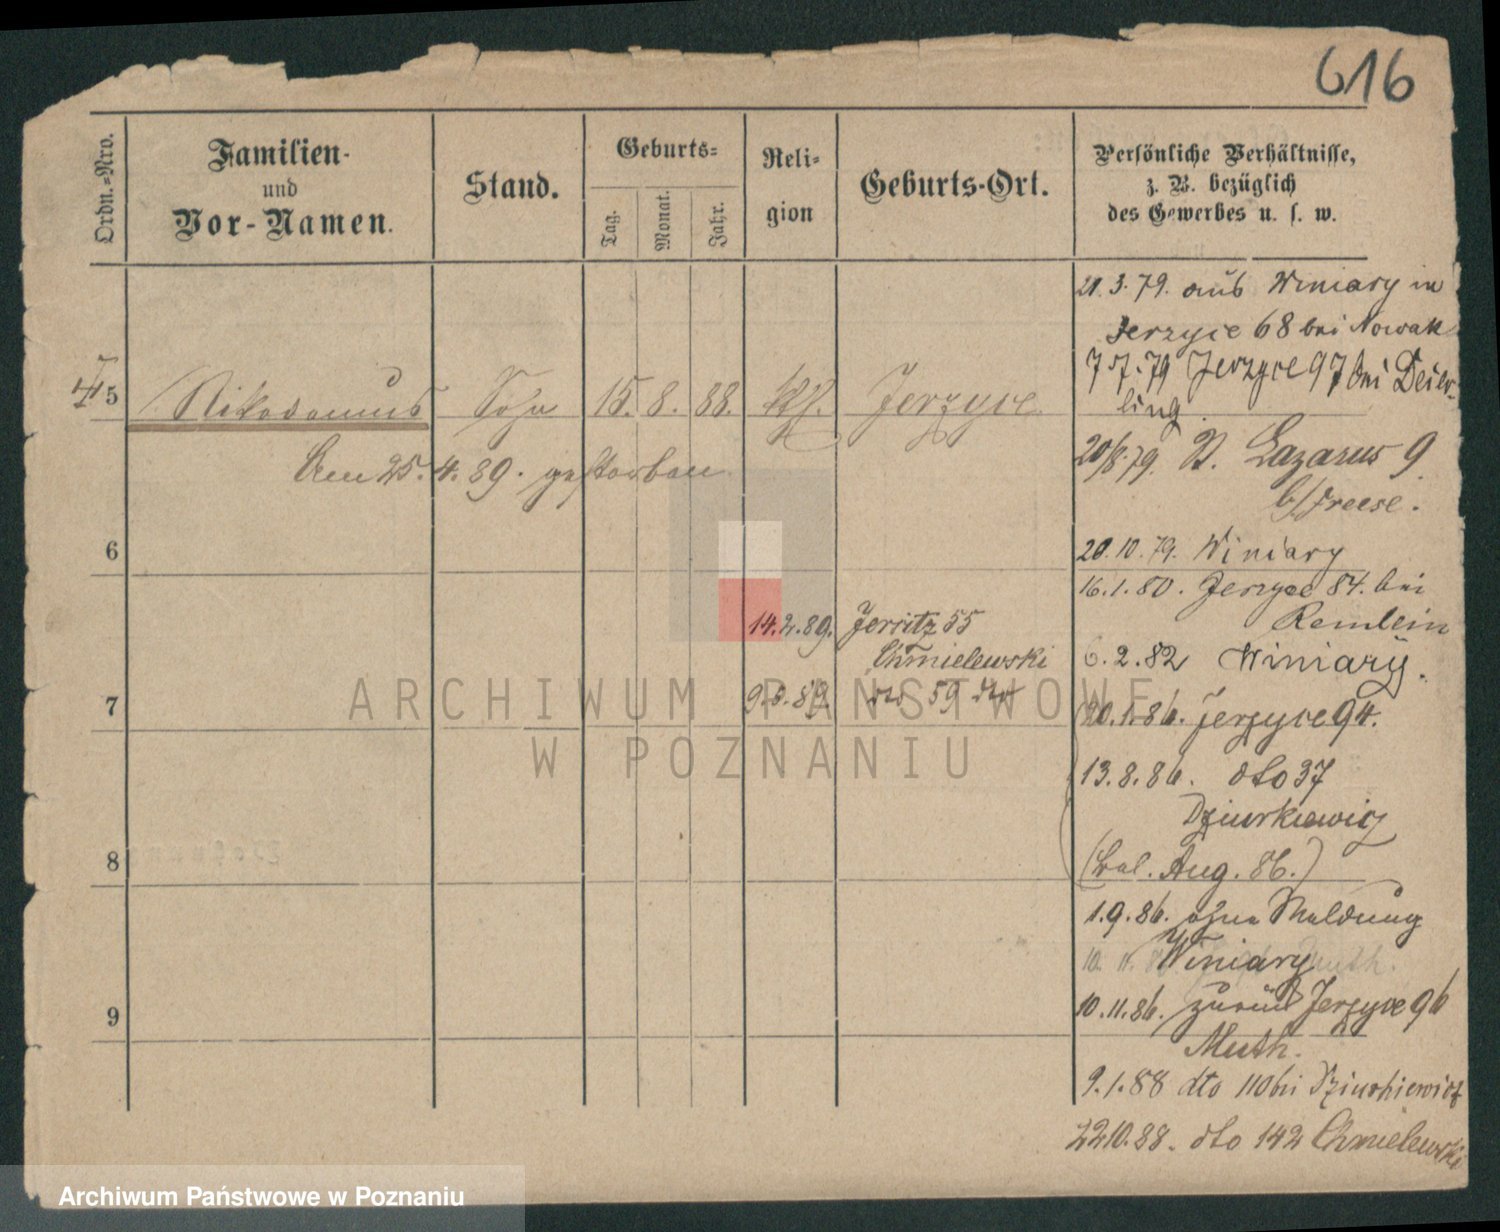 616
Ordn.-Nro.
Familien-
und
Vor-Namen.
Stand.
Geburts-
Tag.
Monat.
Jahr.
Reli-
gion
Geburts-Ort.
Persönliche Verhältnisse,
z. B. bezüglich
des Gewerbes u. s. w.
21.3.79. aus Winiary in
Jerzyce 68 bei Nowak
79 Jerzyce 97 bei
5 Nikodemus Sohn 15. 8. 88. kth. Jerzyce
Am 25.4.89. gestorben
20/8.79. St. Lazarus 9
b/Freese.
6
20.10.79. Winiary
16.1.80. Jerzyce 84. bei
Remlein
14.2.89. Jersitz 55
Chmielewski
6.2.82 Winiary.
7
9.5.89. do 59 dto
20.1.86. Jerzyce 94.
13.8.86. dto 37
Dziurkiewicz
8
Aug. 86.)
1.9.86. ohne Meldung
Winiary
9
10.11.86. zurück Jerzyce 96
Muth.
9.1.88 dto 110 bei Dziurkiewicz
22.10.88. dto 142 Chmielewski
ARCHIWUM PAŃSTWOWE
W POZNANIU
Archiwum Państwowe w Poznaniu